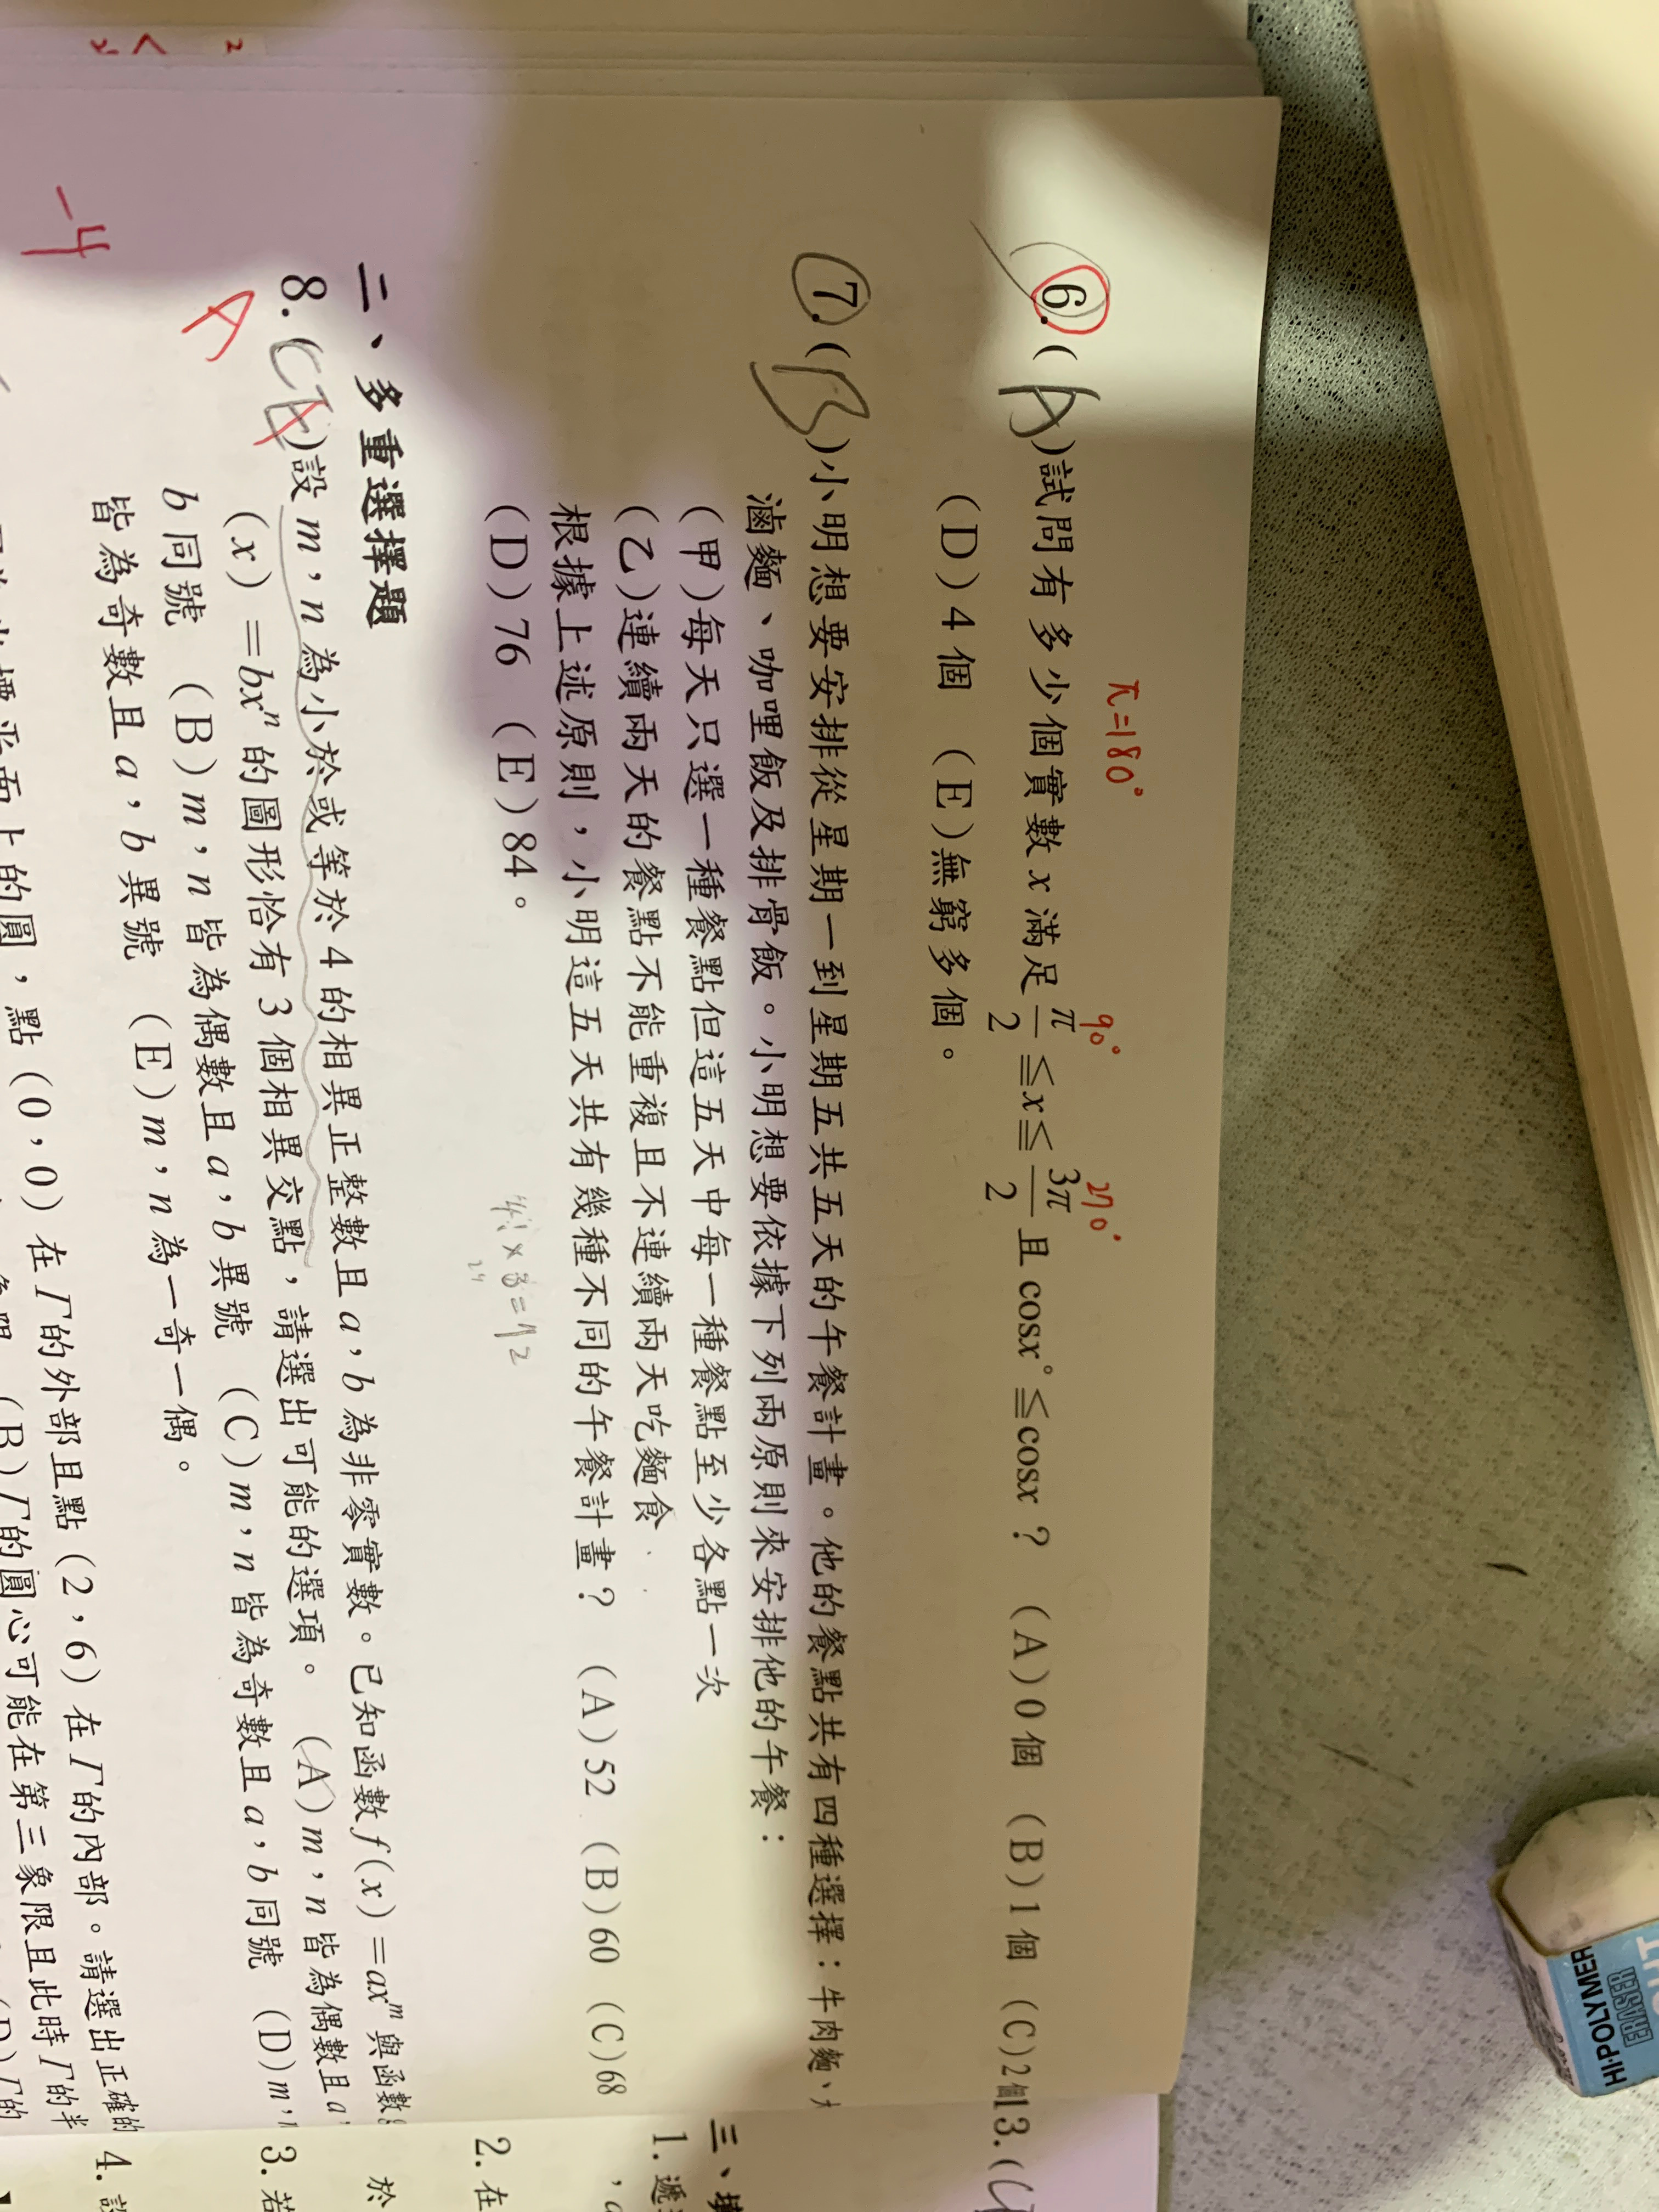 π=180°
90° 270°
6.(A)試問有多少個實數x滿足π/2≦x≦3π/2且cosx°≦cosx? (A)0個 (B)1個 (C)2個
(D)4個 (E)無窮多個。
7.(B)小明想要安排從星期一到星期五共五天的午餐計畫。他的餐點共有四種選擇:牛肉麵、
滷麵、咖哩飯及排骨飯。小明想要依據下列兩原則來安排他的午餐:
(甲)每天只選一種餐點但這五天中每一種餐點至少各點一次
(乙)連續兩天的餐點不能重複且不連續兩天吃麵食
根據上述原則,小明這五天共有幾種不同的午餐計畫? (A)52 (B)60 (C)68
(D)76 (E)84。
4!×3=72
24
二、多重選擇題
8.( )設m,n為小於或等於4的相異正整數且a,b為非零實數。已知函數f(x)=axᵐ與函數
(x)=bxⁿ的圖形恰有3個相異交點,請選出可能的選項。 (A)m,n皆為偶數且a,
b同號 (B)m,n皆為偶數且a,b異號 (C)m,n皆為奇數且a,b同號 (D)m,
皆為奇數且a,b異號 (E)m,n為一奇一偶。
A
-4
的圓,點(0,0)在Γ的外部且點(2,6)在Γ的內部。請選出正確的
(B)Γ的圓心可能在第三象限且此時Γ的半
13.(
三、
1.遞
2.在
於
3.若
4.
HI-POLYMER
ERASER